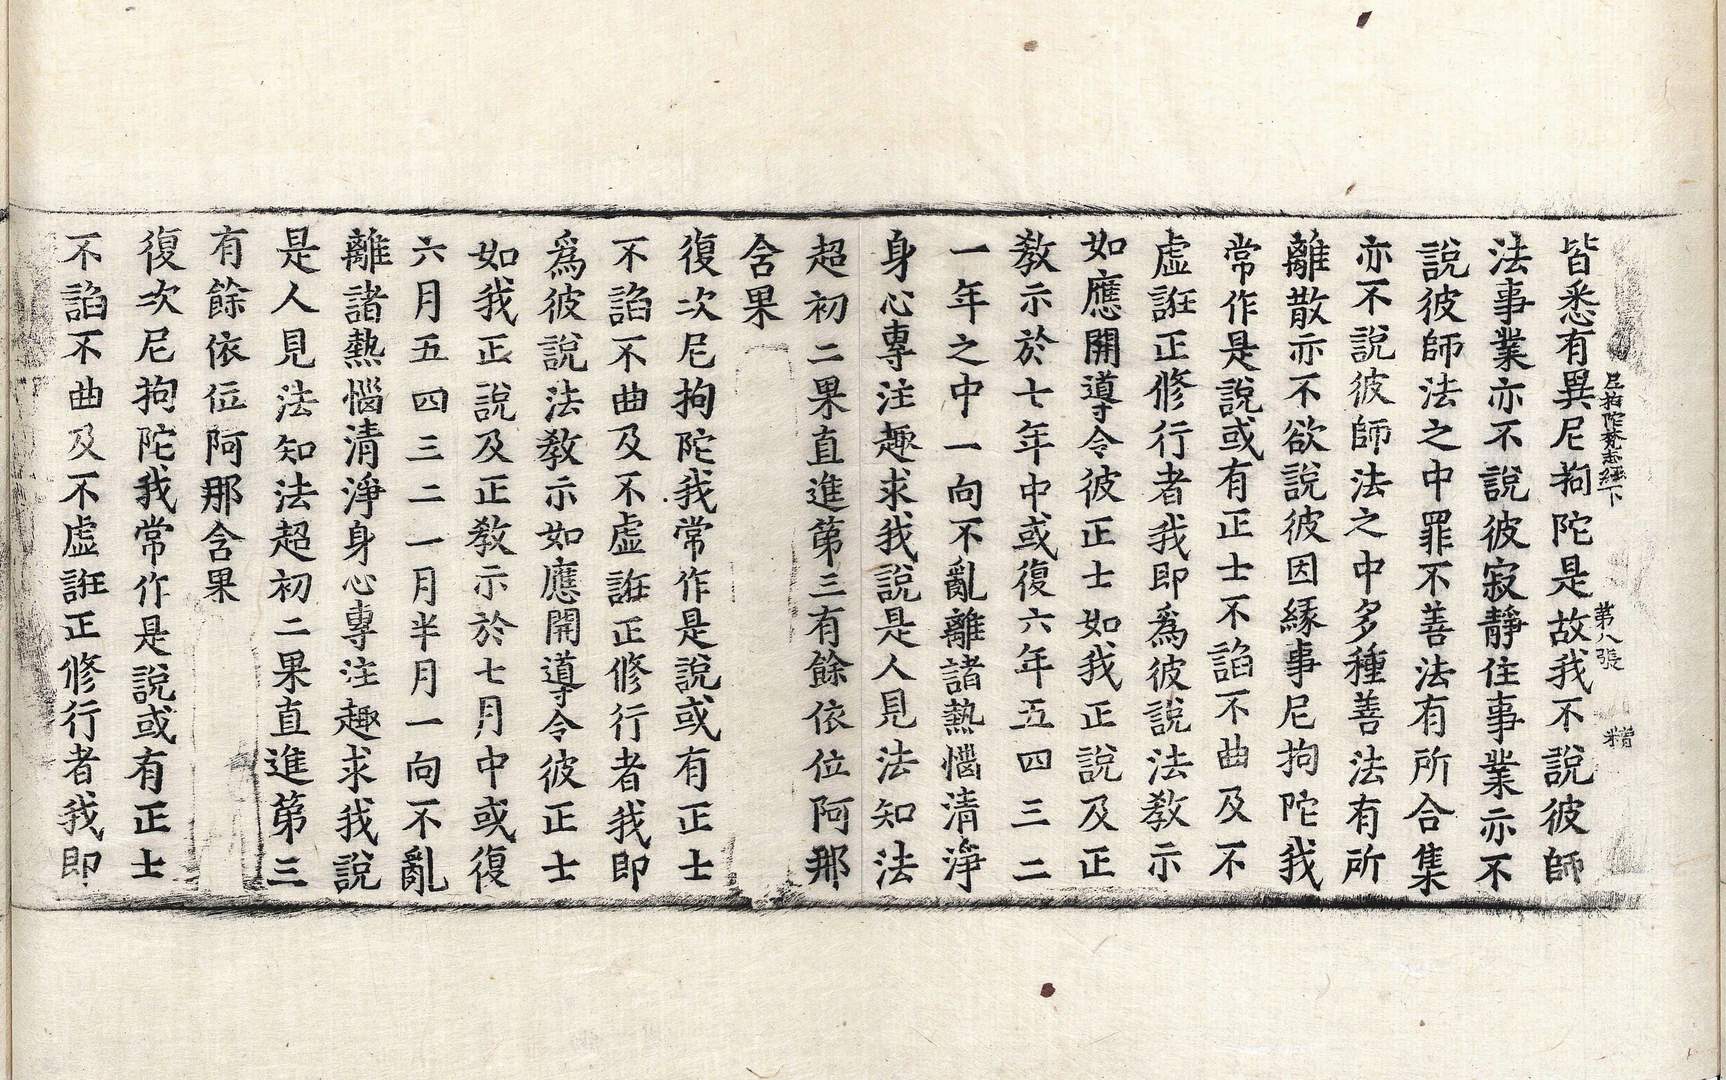 尼拘陀梵志經下 第八張 精
皆悉有異尼拘陀是故我不說彼師
法事業亦不說彼寂靜住事業亦不
說彼師法之中罪不善法有所合集
亦不說彼師法之中多種善法有所
離散亦不欲說彼因緣事尼拘陀我
常作是說或有正士不諂不曲及不
虛誑正修行者我即為彼說法教示
如應開導令彼正士如我正說及正
教示於七年中或復六年五四三二
一年之中一向不亂離諸熱惱清淨
身心專注趣求我說是人見法知法
超初二果直進第三有餘依位阿那
含果
復次尼拘陀我常作是說或有正士
不諂不曲及不虛誑正修行者我即
為彼說法教示如應開導令彼正士
如我正說及正教示於七月中或復
六月五四三二一月半月一向不亂
離諸熱惱清淨身心專注趣求我說
是人見法知法超初二果直進第三
有餘依位阿那含果
復次尼拘陀我常作是說或有正士
不諂不曲及不虛誑正修行者我即